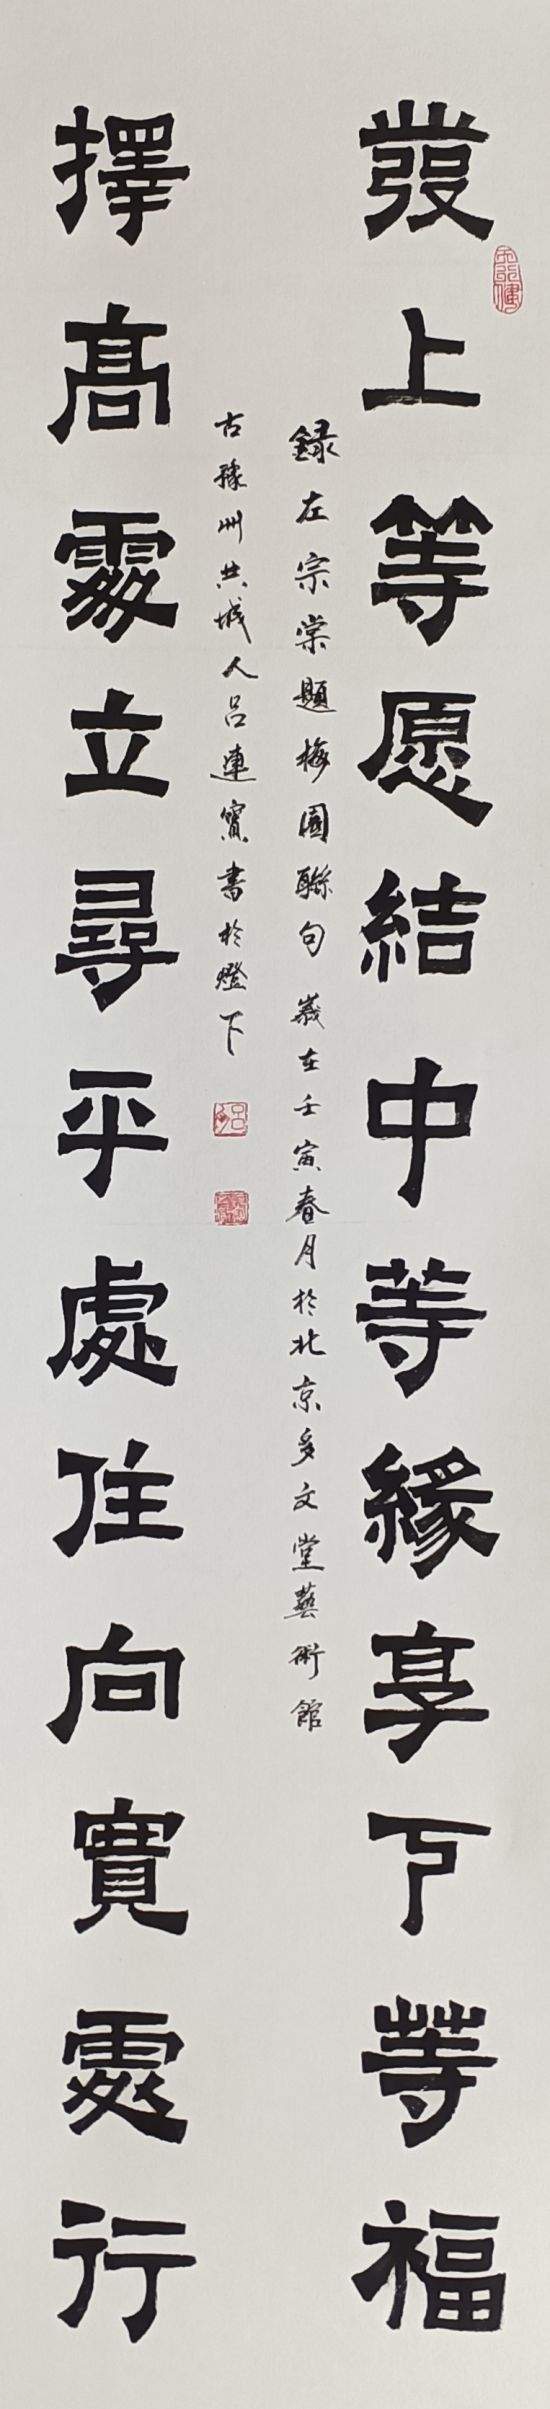 發上等愿結中等緣享下等福
録左宗棠題梅園聯句 歲在壬寅春月於北京多文堂藝術館
古豫州共城人吕連寳書於燈下
擇高處立尋平處住向實處行